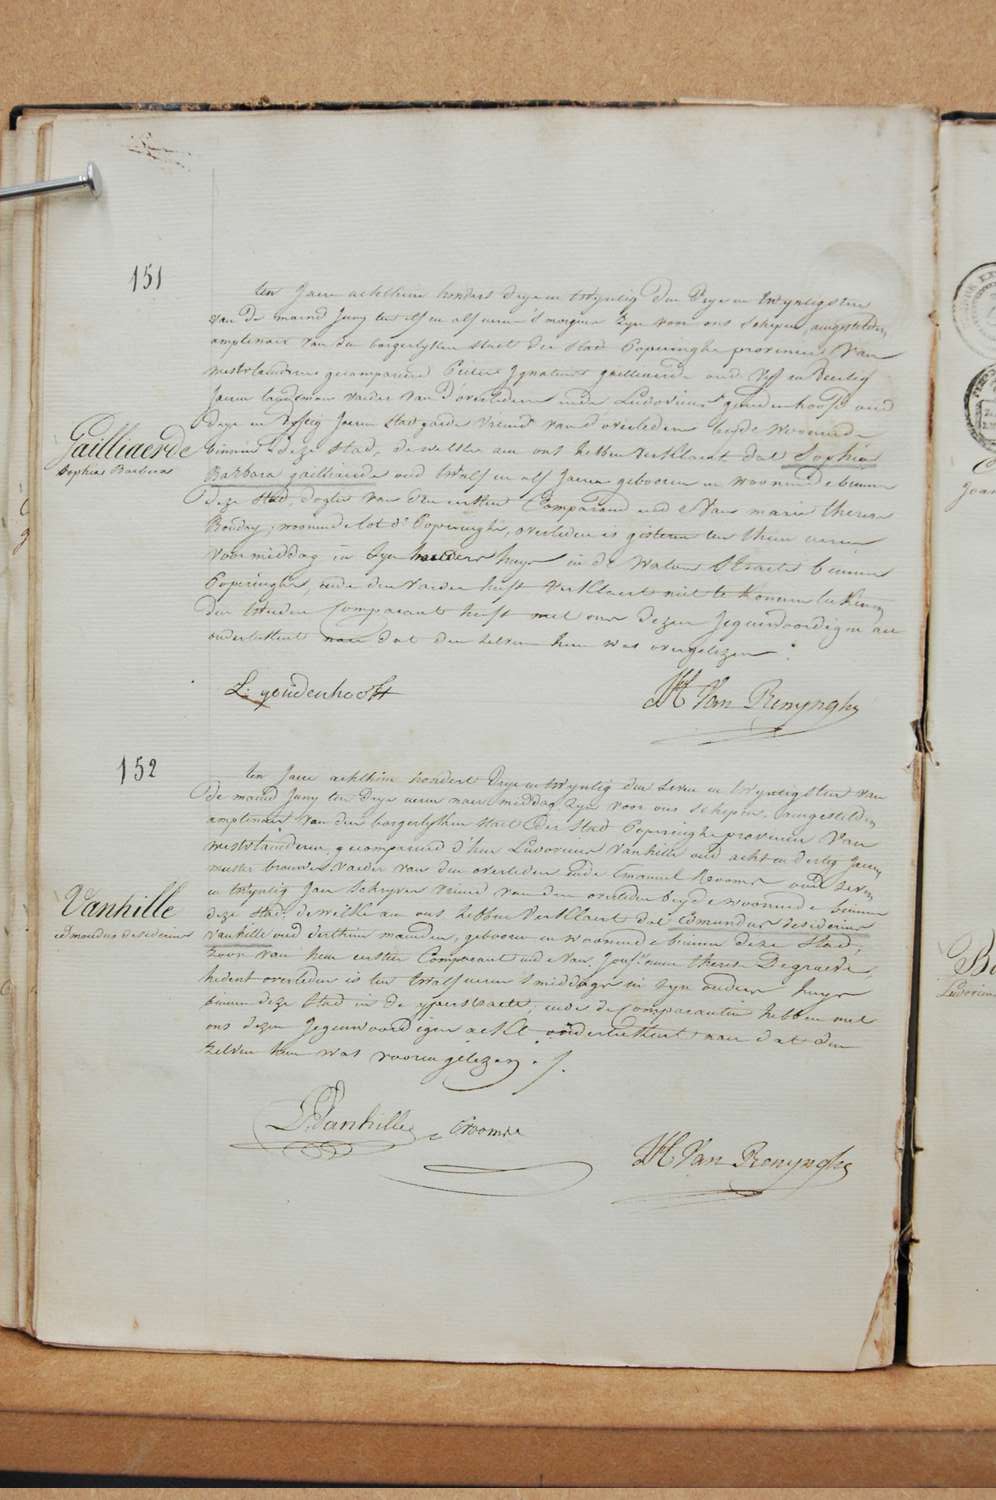 151
ten Jaere achthien honderd drye en twyntig den drye en twyntigsten
van de maend Juny ten elf en alf uren 's morgens zyn voor ons schepen, aengestelden
amptenaer van den borgerlyken staet der stad Poperinghe provincie van
westvlaenderen gecompareerd Pieter Ignatius gailliaerde oud vyf en veertig
Jaeren landsman vaeder van d'overledene ende Ludovicus goudenhooft oud
drye en vyftig Jaeren Stad garde vriend van d'overledene beyde woonende
Gailliaerde
Sophia Barbara
binnen deze stad, de welke aen ons hebben verklaert dat Sophia
Barbara gailliaerde oud twalf en alf Jaeren gebooren en woonende binnen
deze stad, dogter van den eersten Comparant ende van marie therese
Boudry, woonende tot d' Poperinghe, overleden is gisteren ten thien uren
voormiddag in zyn huys in de Straete binnen
Poperinghe, ende den vaeder heeft verklaert niet te konnen teekenen
den tweeden Comparant heeft met ons dezen Jegenwoordigen acte
onderteekent naer dat den zelven hem was voorgelezen
L: goudenhooft
JH Van Renynghe
152
ten Jaere achthien honderd drye en twyntig den seven en twyntigsten van
de maend Juny ten drye uren naer middag zyn voor ons schepen, aengestelden
amptenaer van den borgerlyken staet der stad Poperinghe provincie van
westvlaenderen, gecompareerd d'heer Ludovicus Vanhille oud acht en dertig Jaeren
meester brouwer vaeder van den overleden ende Emanuel Croome oud seven
en twyntig Jaer schryver vriend van den overleden beyde woonende binnen
Vanhille
edmondus desiderius
deze stad, dewelke aen ons hebben verklaert dat Edmundus desiderius
Vanhille oud derthien maenden, gebooren en woonende binnen deze stad,
zoon van hem eersten Comparant ende van Jouf.e therese Degraeve
hedent overleden is ten twalf uren 's middags in zyn ouders huys
binnen deze stad in de yperstraete, ende de Comparanten hebben met
ons dezen Jegenwoordigen acte onderteekent naer dat den
zelven hun was vooren gelezen ./.
L. Vanhille
Croome
JH Van Renynghe